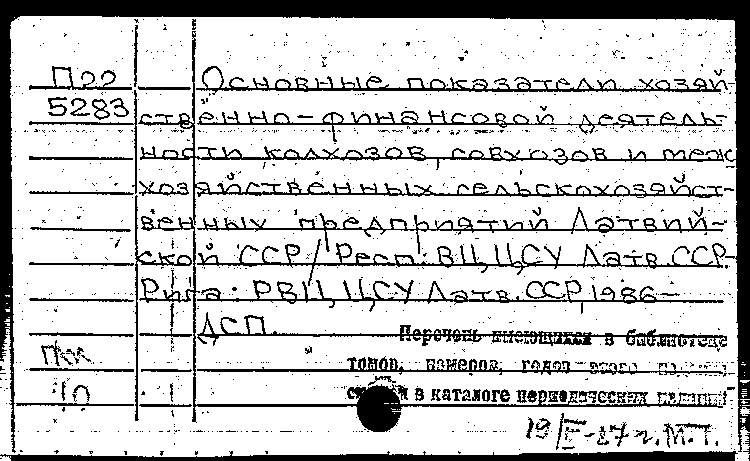 П22
5283
Основные показатели хозяй
ственно-финансовой деятель-
ности колхозов, совхозов и меж
хозяйственных сельскохозяйст-
венных предприятий Латвий-
ской ССР/Респ. ВЦ ЦСУ Латв. ССР.-
Рига: РВЦ ЦСУ Латв. ССР, 1986-
ДСП.
Перечень имеющихся в библиотеке
томов, номеров, годов этого
в каталоге периодических изданий
10
19/II-87 г. М.Т.